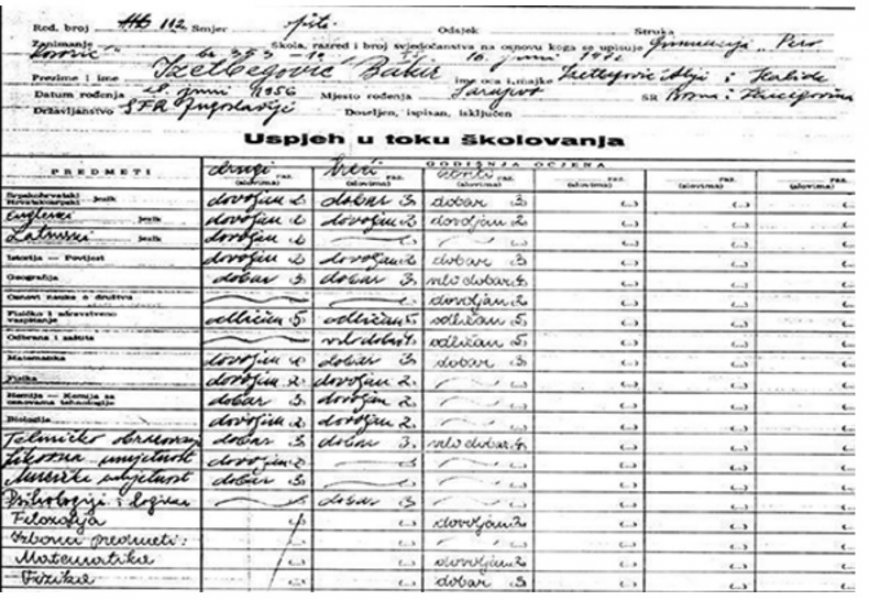 Red. broj 112 Smjer opšte. Odsjek Struka
Zanimanje Škola, razred i broj svjedočanstva na osnovu koga se upisuje Gimnazija „Pero
Kosorić"
Prezime i ime Izetbegović Bakir ime oca i majke Izetbegović Alija i Halida
Datum rođenja 28. juni 1956 Mjesto rođenja Sarajevo SR Bosna i Hercegovina
Državljanstvo SFR Jugoslavije Doseljen, ispisan, isključen
Uspjeh u toku školovanja
PREDMETI GODIŠNJA OCJENA
drugi raz. treći raz. četvrti raz. raz. raz. raz.
(slovima) (slovima) (slovima) (slovima) (slovima) (slovima)
Srpskohrvatski
Hrvatskosrpski jezik dovoljan 2 dobar 3. dobar 3
Engleski jezik dovoljan 2 dovoljan 2 dovoljan 2
Latinski jezik dovoljan 2
Istorija — Povijest dovoljan 2 dovoljan 2 dobar 3
Geografija dobar 3 dobar 3 vrlo dobar 4
Osnovi nauka o društvu dovoljan 2
Fizičko i zdravstveno
vaspitanje odličan 5. odličan 5. odličan 5.
Odbrana i zaštita vrlo dobar 4 odličan 5.
Matematika dovoljan 2 dobar 3. dobar 3
Fizika dovoljan 2. dovoljan 2.
Hemija — Kemija sa
osnovama tehnologije dobar 3 dovoljan 2.
Biologija dovoljan 2 dovoljan 2.
Tehničko obrazovanje dobar 3 dobar 3. vrlo dobar 4
Likovna umjetnost dovoljan 2
Muzička umjetnost dobar 3
Psihologija i logika dobar 3
Filozofija dovoljan 2
Izborni predmeti:
Matematika dovoljan 2
Fizika dobar 3